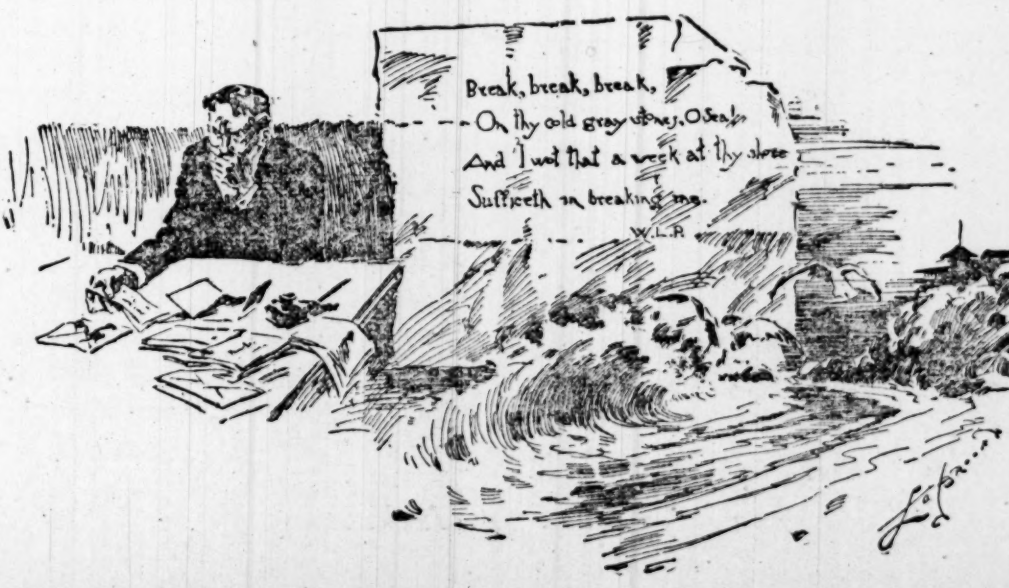 Break, break, break,
On thy cold gray stones, O Sea!
And I wot that a week at thy shore
Sufficeth in breaking me.
W.L.P.